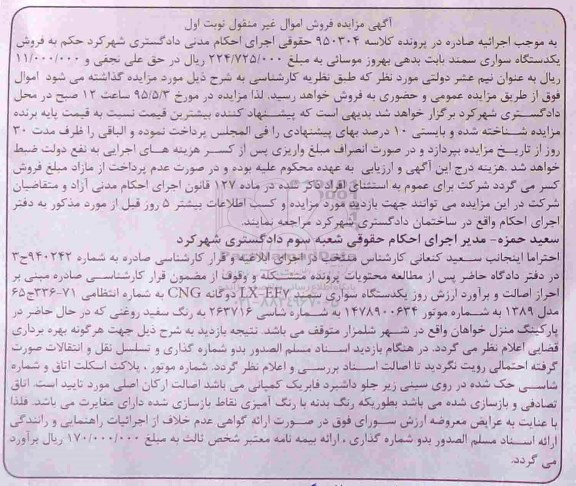 آگهی مزایده فروش اموال غیر منقول نوبت اول
به موجب اجرائیه صادره در پرونده کلاسه ۹۵۰۳۰۴ حقوقی اجرای احکام مدنی دادگستری شهرکرد حکم به فروش
یکدستگاه سواری سمند بابت بدهی بهروز موسائی به مبلغ ۲۲۴/۷۲۵/۰۰۰ ریال در حق علی نجفی و ۱۱/۰۰۰/۰۰۰
ریال به عنوان نیم عشر دولتی مورد نظر که طبق نظریه کارشناسی به شرح ذیل مورد مزایده گذاشته می شود اموال
فوق از طریق مزایده عمومی و حضوری به فروش خواهد رسید. لذا مزایده در مورخ ۹۵/۵/۳ ساعت ۱۲ صبح در محل
دادگستری شهرکرد برگزار خواهد شد بدیهی است که پیشنهاد کننده بیشترین قیمت نسبت به قیمت پایه برنده
مزایده شناخته شده و بایستی ۱۰ درصد بهای پیشنهادی را فی المجلس پرداخت نموده و الباقی را ظرف مدت ۳۰
روز از تاریخ مزایده بپردازد و در صورت انصراف مبلغ واریزی پس از کسر هزینه های اجرایی به نفع دولت ضبط
خواهد شد .هزینه درج این آگهی و ارزیابی به عهده محکوم علیه بوده و در صورت عدم پرداخت از مازاد مبلغ فروش
کسر می گردد شرکت برای عموم به استثنای افراد ذکر شده در ماده ۱۲۷ قانون اجرای احکام مدنی آزاد و متقاضیان
شرکت در این مزایده می توانند جهت بازدید مورد مزایده و کسب اطلاعات بیشتر ۵ روز قبل از مورد مذکور به دفتر
اجرای احکام واقع در ساختمان دادگستری شهرکرد مراجعه نمایند.
سعید حمزه- مدیر اجرای احکام حقوقی شعبه سوم دادگستری شهرکرد
احتراما اینجانب سعید کنعانی کارشناس منتخب در اجرای ابلاغیه و قرار کارشناسی صادره به شماره ۹۴۰۲۴۲ح۳
در دفتر دادگاه حاضر پس از مطالعه محتویات پرونده متشکله و وقوف از مضمون قرار کارشناسی صادره مبنی بر
احراز اصالت و برآورد ارزش روز یکدستگاه سواری سمند LX-EF۷ دوگانه CNG به شماره انتظامی ۷۱-۳۳۶ج۶۵
مدل ۱۳۸۹ به شماره موتور ۱۴۷۸۹۰۰۶۳۴ به شماره شاسی ۲۶۳۷۱۶ به رنگ سفید روغنی که در حال حاضر در
پارکینگ منزل خواهان واقع در شهر شلمزار متوقف می باشد. نتیجه بازدید به شرح ذیل جهت هرگونه بهره برداری
قضایی اعلام نظر می گردد. در هنگام بازدید اسناد مسلم الصدور بدو شماره گذاری و تسلسل نقل و انتقالات صورت
گرفته احتمالی رویت نگردید تا اصالت اسناد بررسی و اعلام نظر گردد. شماره موتور ، پلاکت اسکلت اتاق و شماره
شاسی حک شده در روی سینی زیر جلو داشبرد فابریک کمپانی می باشد اصالت ارکان اصلی مورد تایید است. اتاق
تصادفی و بازسازی شده می باشد بطوریکه رنگ بدنه با رنگ آمیزی نقاط بازسازی شده دارای مغایرت می باشد. فلذا
با عنایت به عرایض معروضه ارزش سورای فوق در صورت ارائه گواهی عدم خلاف از اجرائیات راهنمایی و رانندگی
ارائه اسناد مسلم الصدور بدو شماره گذاری ، ارائه بیمه نامه معتبر شخص ثالث به مبلغ ۱۷۰/۰۰۰/۰۰۰ ریال برآورد
می گردد.